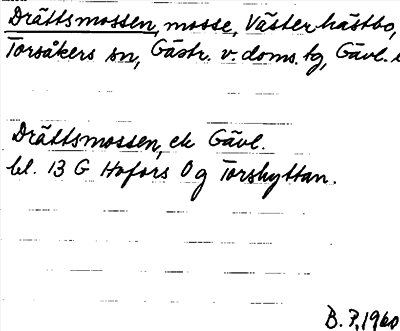 Drättsmossen, mosse, Västerhästbo,
Torsåkers sn, Gästr. v. doms. tg, Gävl.
Drättsmossen, ek Gävl.
bl. 13 G Hofors Og Torshyttan.
B. P, 1960